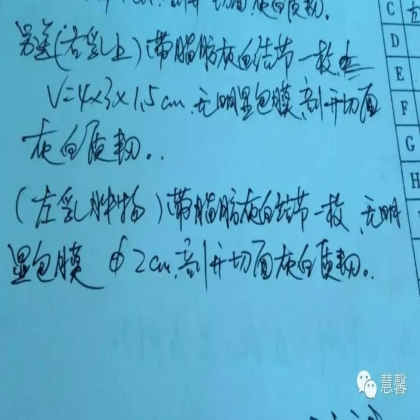 切面灰白质韧.
另送(右乳上)带脂肪灰白结节一枚
V=4×3×1.5cm,无明显包膜,剖开切面
灰白质韧..
(左乳肿物)带脂肪灰白结节一枚,无明
显包膜 φ2cm,剖开切面灰白质韧..
C
D
E
F
G
H
慧馨